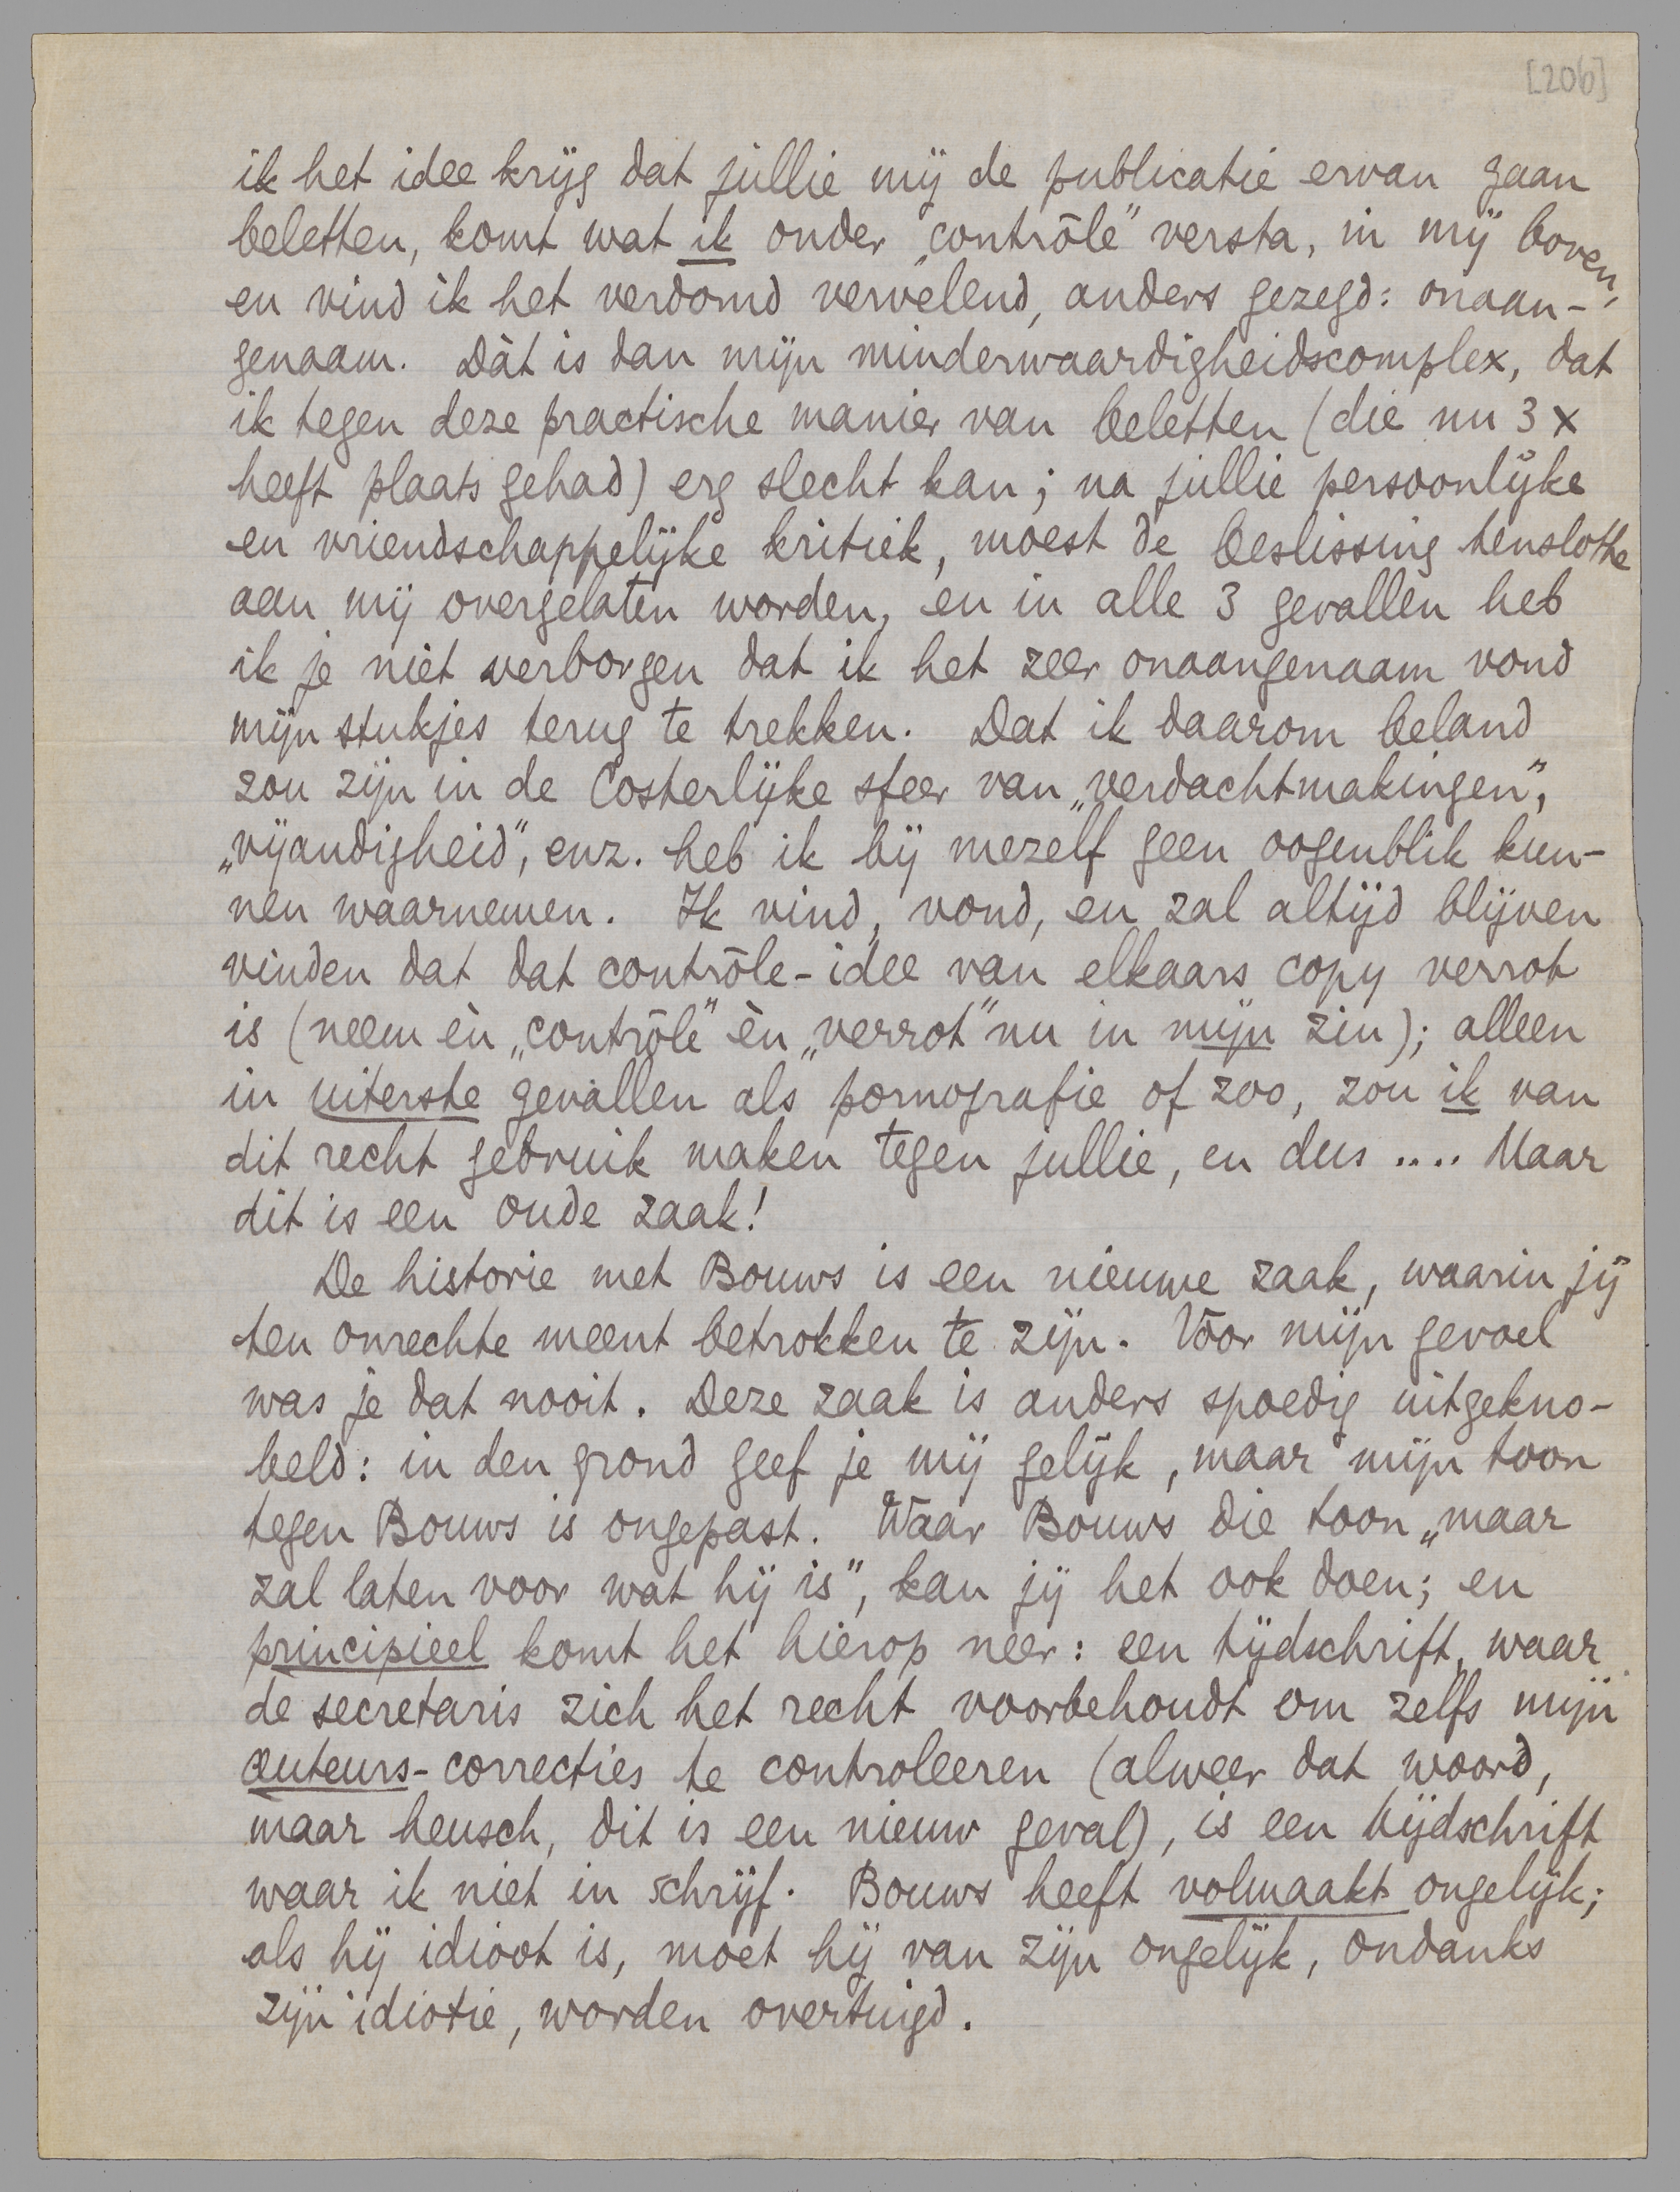 [206]
ik het idee krijg dat jullie mij de publicatie ervan gaan
beletten, komt wat ik onder „contrôle” versta, in mij boven,
en vind ik het verdomd vervelend, anders gezegd: onaan-
genaam. Dàt is dan mijn minderwaardigheidscomplex, dat
ik tegen deze practische manier van beletten (die nu 3 x
heeft plaats gehad) erg slecht kan; na jullie persoonlijke
en vriendschappelijke kritiek, moest de beslissing tenslotte
aan mij overgelaten worden, en in alle 3 gevallen heb
ik je niet verborgen dat ik het zeer onaangenaam vond
mijn stukjes terug te trekken. Dat ik daarom beland
zou zijn in de Costerlijke sfeer van „verdachtmakingen”,
„vijandigheid”, enz. heb ik bij mezelf geen oogenblik kun-
nen waarnemen. Ik vind, vond, en zal altijd blijven
vinden dat dat contrôle-idee van elkaars copy verrot
is (neem èn „contrôle” èn „verrot” nu in mijn zin); alleen
in uiterste gevallen als pornografie of zoo, zou ik van
dit recht gebruik maken tegen jullie, en dus .... Maar
dit is een oude zaak!
De historie met Bouws is een nieuwe zaak, waarin jij
ten onrechte meent betrokken te zijn. Voor mijn gevoel
was je dat nooit. Deze zaak is anders spoedig uitgekno-
beld: in den grond geef je mij gelijk, maar mijn toon
tegen Bouws is ongepast. Waar Bouws die toon „maar
zal laten voor wat hij is”, kan jij het ook doen; en
principieel komt het hierop neer: een tijdschrift, waar
de secretaris zich het recht voorbehoudt om zelfs mijn
auteurs-correcties te controleeren (alweer dat woord,
maar heusch, dit is een nieuw geval), is een tijdschrift
waar ik niet in schrijf. Bouws heeft volmaakt ongelijk;
als hij idioot is, moet hij van zijn ongelijk, ondanks
zijn idiotie, worden overtuigd.